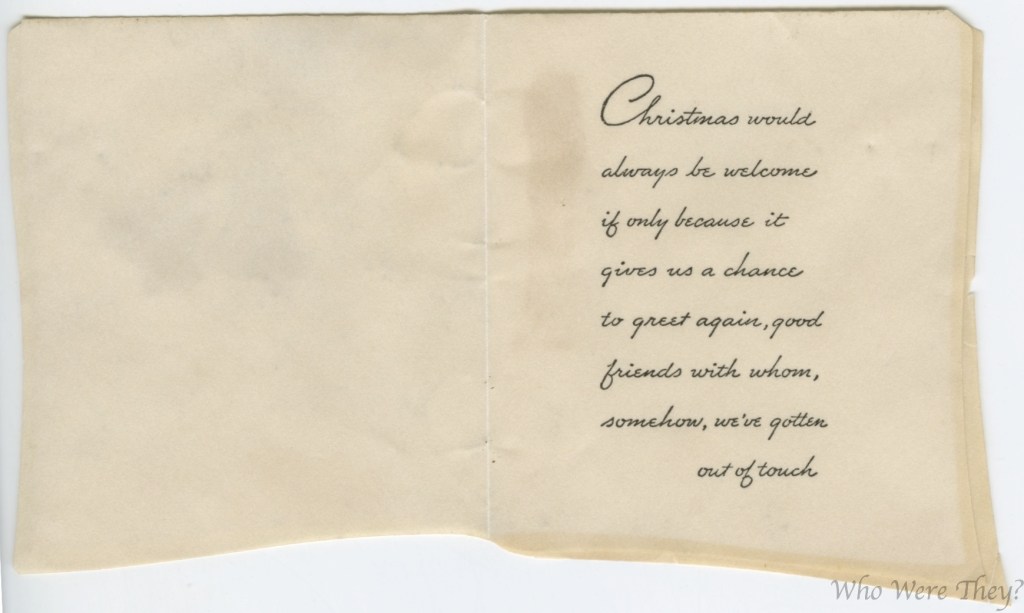 Christmas would
always be welcome
if only because it
gives us a chance
to greet again, good
friends with whom,
somehow, we've gotten
out of touch
Who Were They?